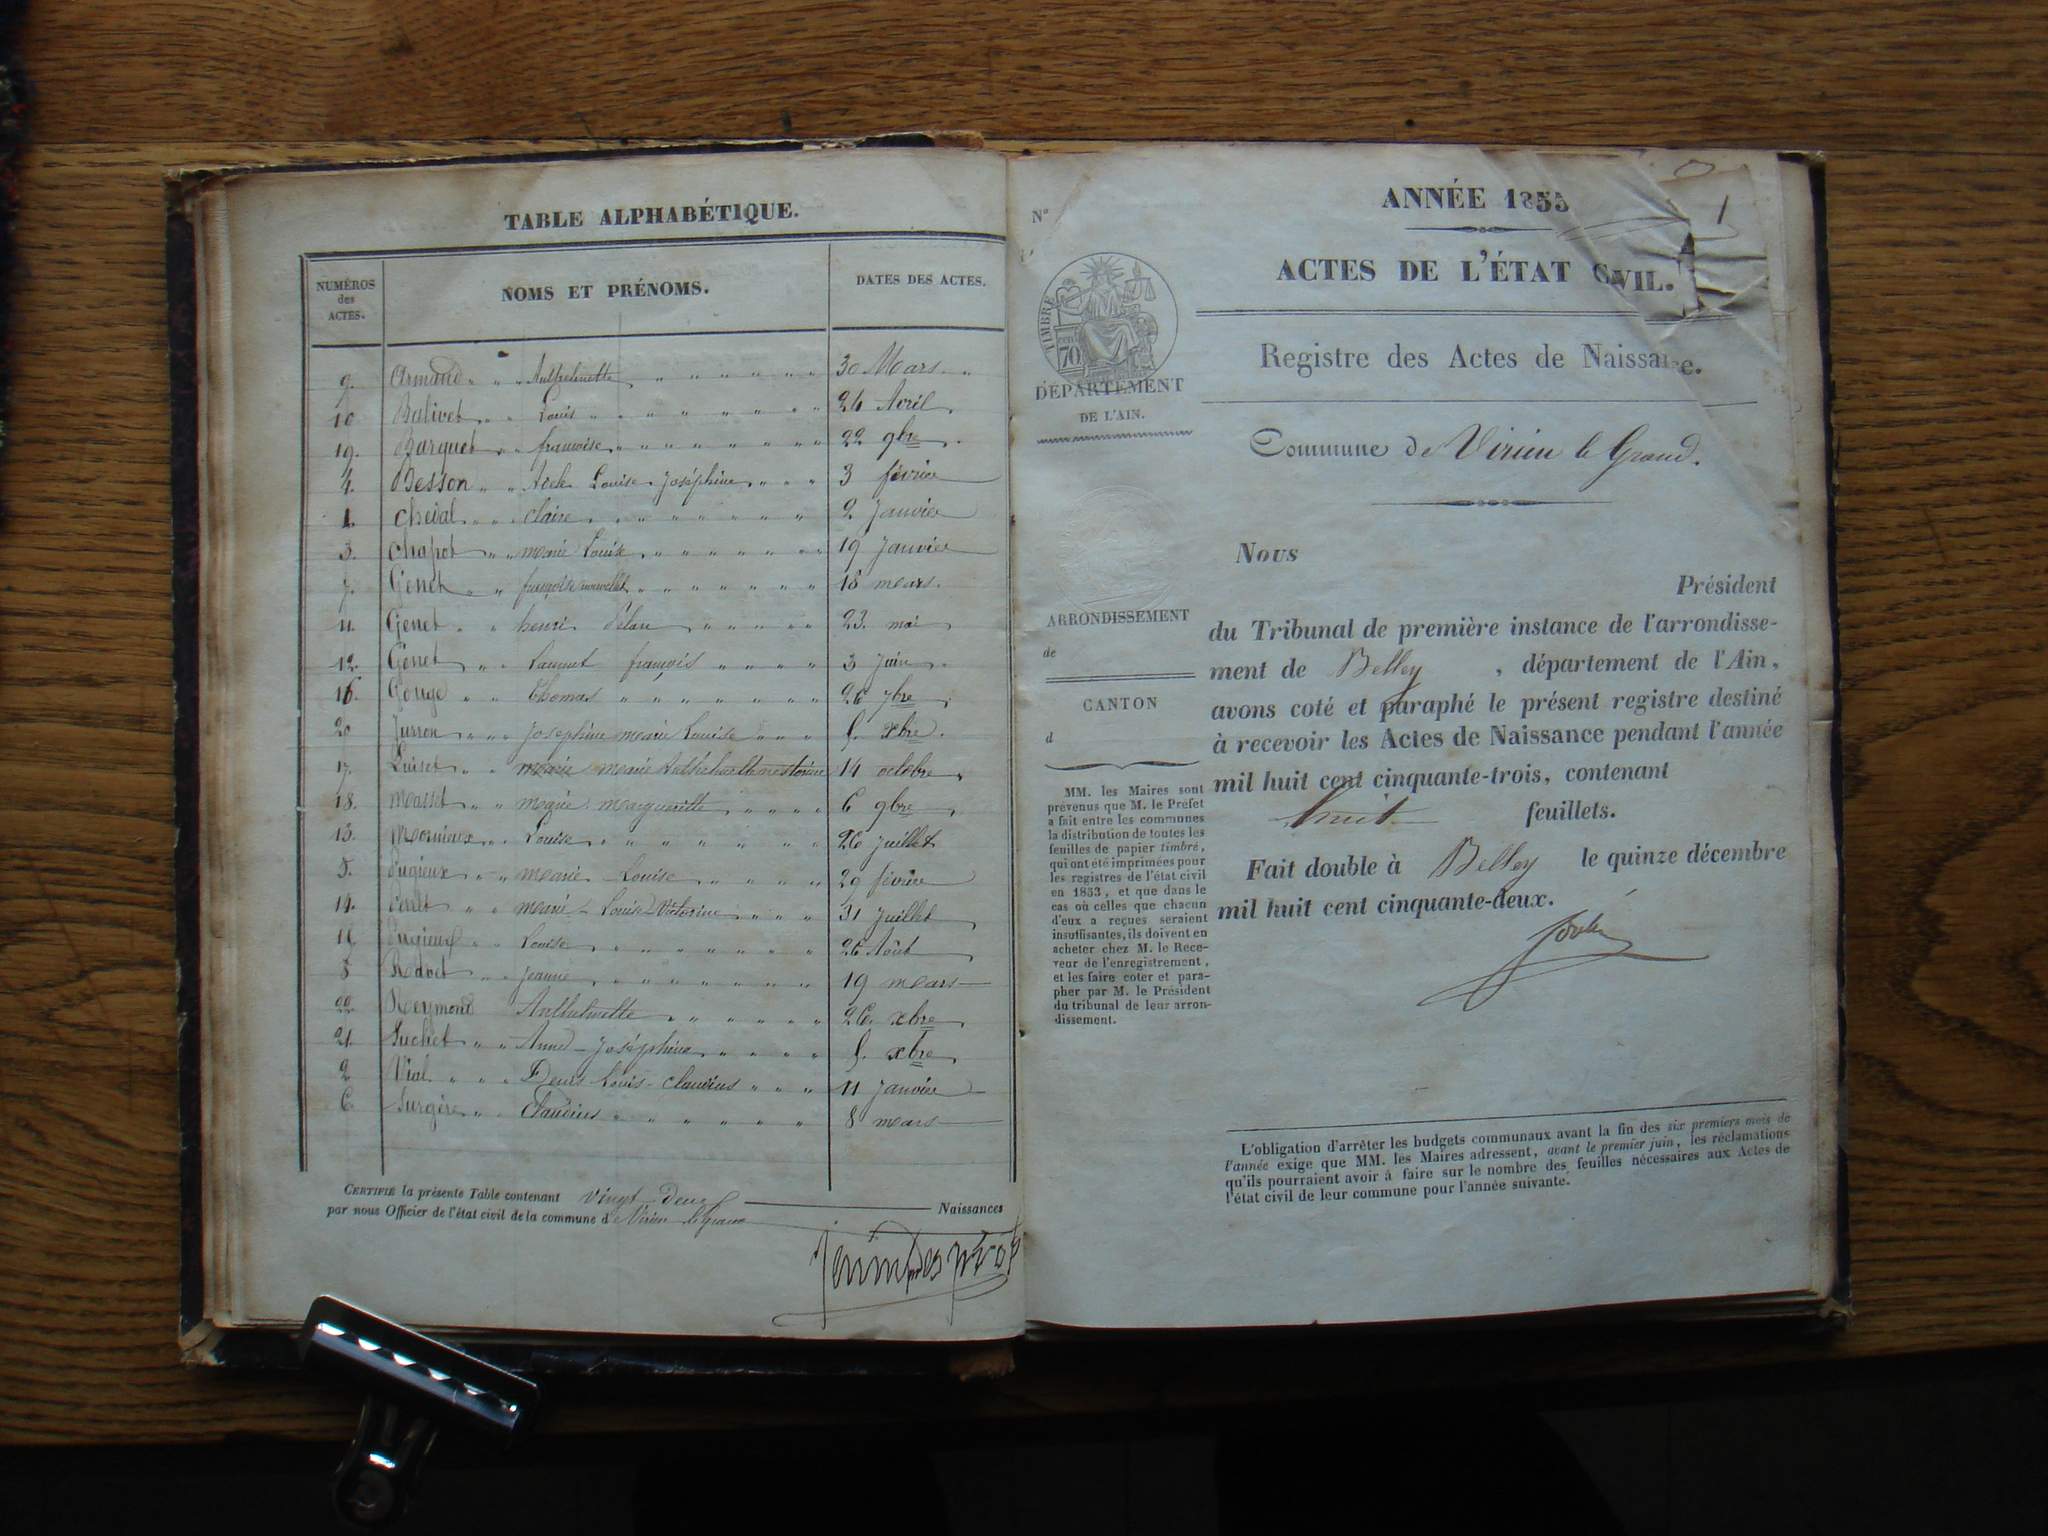 TABLE ALPHABÉTIQUE.
NUMÉROS des ACTES. NOMS ET PRÉNOMS. DATES DES ACTES.
9. Armand " " Anthelmette " " " " " " " 30 Mars "
10 Balivet " " Louis " " " " " " " 24 Avril.
19. Barquet " " françoise " " " " " " " 22 9bre
4. Besson " " Louise Joséphine " " " 3 février
1. Cheval " " claire " " " " " " " 2 Janvier
3. Chapot " " marie Louise " " " " " " 19 Janvier
7. Genet " " " " " " " " 18 mars.
11. Genet " " henri " " " " 23. mai
12. Genet " " françois " " " " 3 Juin
16. Gouge " " thomas " " " " " " " 26 7bre
20 Jurron " " Joséphine marie Louise " " " 8. xbre.
17. Luiset " " marie 14 octobre
18. Masset " " marie marguerite " " " " 6 9bre
13. " " Louise " " " " " " 26 Juillet
5. Pugieux " " marie Louise " " " " 29 février
14. " " marie Louise Victorine " " " 31 Juillet
" " Louise " " " " " " " 26 Août
8 " " Jeanne " " " " " " " 19 mars
22 Reymond Anthelmette " " " " " 26. xbre
21. Suchet " " Anne Joséphine " " " " 8. xbre
2 Vial " " " Denis Louis claudius " " " 11 Janvier
6. Surgère " " Claudius " " " " " " 8 mars
CERTIFIÉ la présente Table contenant vingt deux Naissances
par nous Officier de l'état civil de la commune de Virieu le grand
Nº
ANNÉE 1853
1
ACTES DE L'ÉTAT CIVIL.
TIMBRE
70
Registre des Actes de Naissance.
DÉPARTEMENT
DE L'AIN.
Commune de Virieu le Grand.
Nous
Président
ARRONDISSEMENT
de
CANTON
d
du Tribunal de première instance de l'arrondisse-
ment de Belley, département de l'Ain,
avons coté et paraphé le présent registre destiné
à recevoir les Actes de Naissance pendant l'année
mil huit cent cinquante-trois, contenant
huit feuillets.
Fait double à Belley le quinze décembre
mil huit cent cinquante-deux.
MM. les Maires sont
prévenus que M. le Préfet
a fait entre les communes
la distribution de toutes les
feuilles de papier timbré,
qui ont été imprimées pour
les registres de l'état civil
en 1853, et que dans le
cas où celles que chacun
d'eux a reçues seraient
insuffisantes, ils doivent en
acheter chez M. le Rece-
veur de l'enregistrement,
et les faire coter et para-
pher par M. le Président
du tribunal de leur arron-
dissement.
L'obligation d'arrêter les budgets communaux avant la fin des six premiers mois de
l'année exige que MM. les Maires adressent, avant le premier juin, les réclamations
qu'ils pourraient avoir à faire sur le nombre des feuilles nécessaires aux Actes de
l'état civil de leur commune pour l'année suivante.